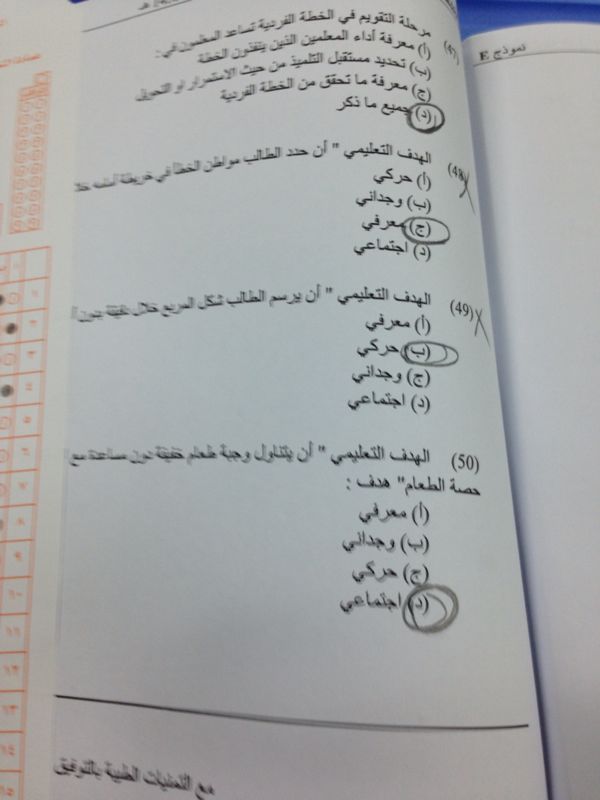 نموذج E
(47) مرحلة التقويم في الخطة الفردية تساعد المعلمون في :
(أ) معرفة أداء المعلمين الذين ينفذون الخطة
(ب) تحديد مستقبل التلميذ من حيث الاستمرار او التحويل
(ج) معرفة ما تحقق من الخطة الفردية
(د) جميع ما ذكر
(48) الهدف التعليمي " أن حدد الطالب مواطن الخطأ في خريطة أمامه خلا
(أ) حركي
(ب) وجداني
(ج) معرفي
(د) اجتماعي
(49) الهدف التعليمي " أن يرسم الطالب شكل المربع خلال دقيقة بدون
(أ) معرفي
(ب) حركي
(ج) وجداني
(د) اجتماعي
(50) الهدف التعليمي " أن يتناول وجبة طعام خفيفة دون مساعدة مع
حصة الطعام" هدف :
(أ) معرفي
(ب) وجداني
(ج) حركي
(د) اجتماعي
مع التمنيات الطيبة بالتوفيق
٩
١٠
١١
١٢
١٣
١٤
١٥